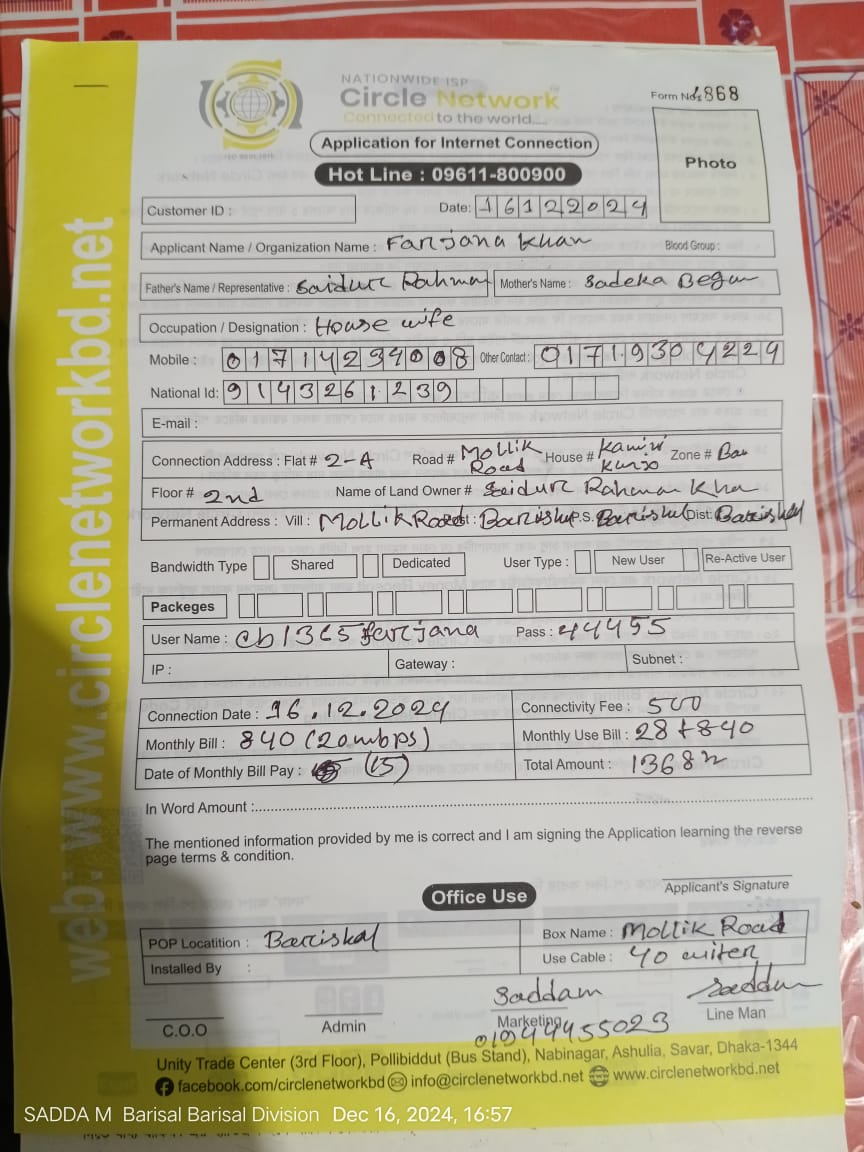 NATIONWIDE ISP
Circle Network
Connected to the world....
Form No: 868
Application for Internet Connection
Photo
Hot Line : 09611-800900
Customer ID :
Date: 16122024
Applicant Name / Organization Name : Farjana Khan Blood Group :
Father's Name / Representative : Saidur Rahman Mother's Name : Sadeka Begum
Occupation / Designation : House wife
Mobile : 01714234008 Other Contact : 01719304224
National Id: 9143261239
E-mail :
Connection Address : Flat # 2-A Road # Mollik Road House # Zone # Bar
Floor # 2nd Name of Land Owner # Saidur Rahman Kha
Permanent Address : Vill : Mollik Road Barishal P.S. Barishal Dist: Barishal
Bandwidth Type Shared Dedicated User Type : New User Re-Active User
Packeges
User Name : cb1365farjana Pass : 44455
IP : Gateway : Subnet :
Connection Date : 16.12.2024 Connectivity Fee : 500
Monthly Bill : 840 (20mbps) Monthly Use Bill : 28+840
Date of Monthly Bill Pay : (15) Total Amount : 1368
In Word Amount :
The mentioned information provided by me is correct and I am signing the Application learning the reverse
page terms & condition.
Applicant's Signature
Office Use
POP Locatition : Bariskal Box Name : Mollik Road
Installed By : Use Cable : 40 miter
Saddam Saddam
C.O.O Admin Marketing Line Man
01944455023
Unity Trade Center (3rd Floor), Pollibiddut (Bus Stand), Nabinagar, Ashulia, Savar, Dhaka-1344
facebook.com/circlenetworkbd info@circlenetworkbd.net www.circlenetworkbd.net
web: www.circlenetworkbd.net
SADDA M Barisal Barisal Division Dec 16, 2024, 16:57